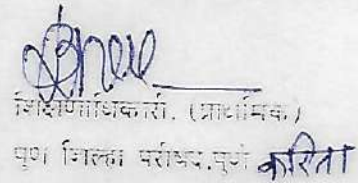 शिक्षणाधिकारी. (प्राथमिक)
पुणे जिल्हा परीषद.पुणे करिता